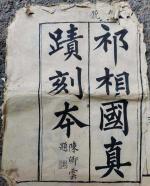 祁相國真
蹟刻本
陳御雲
題